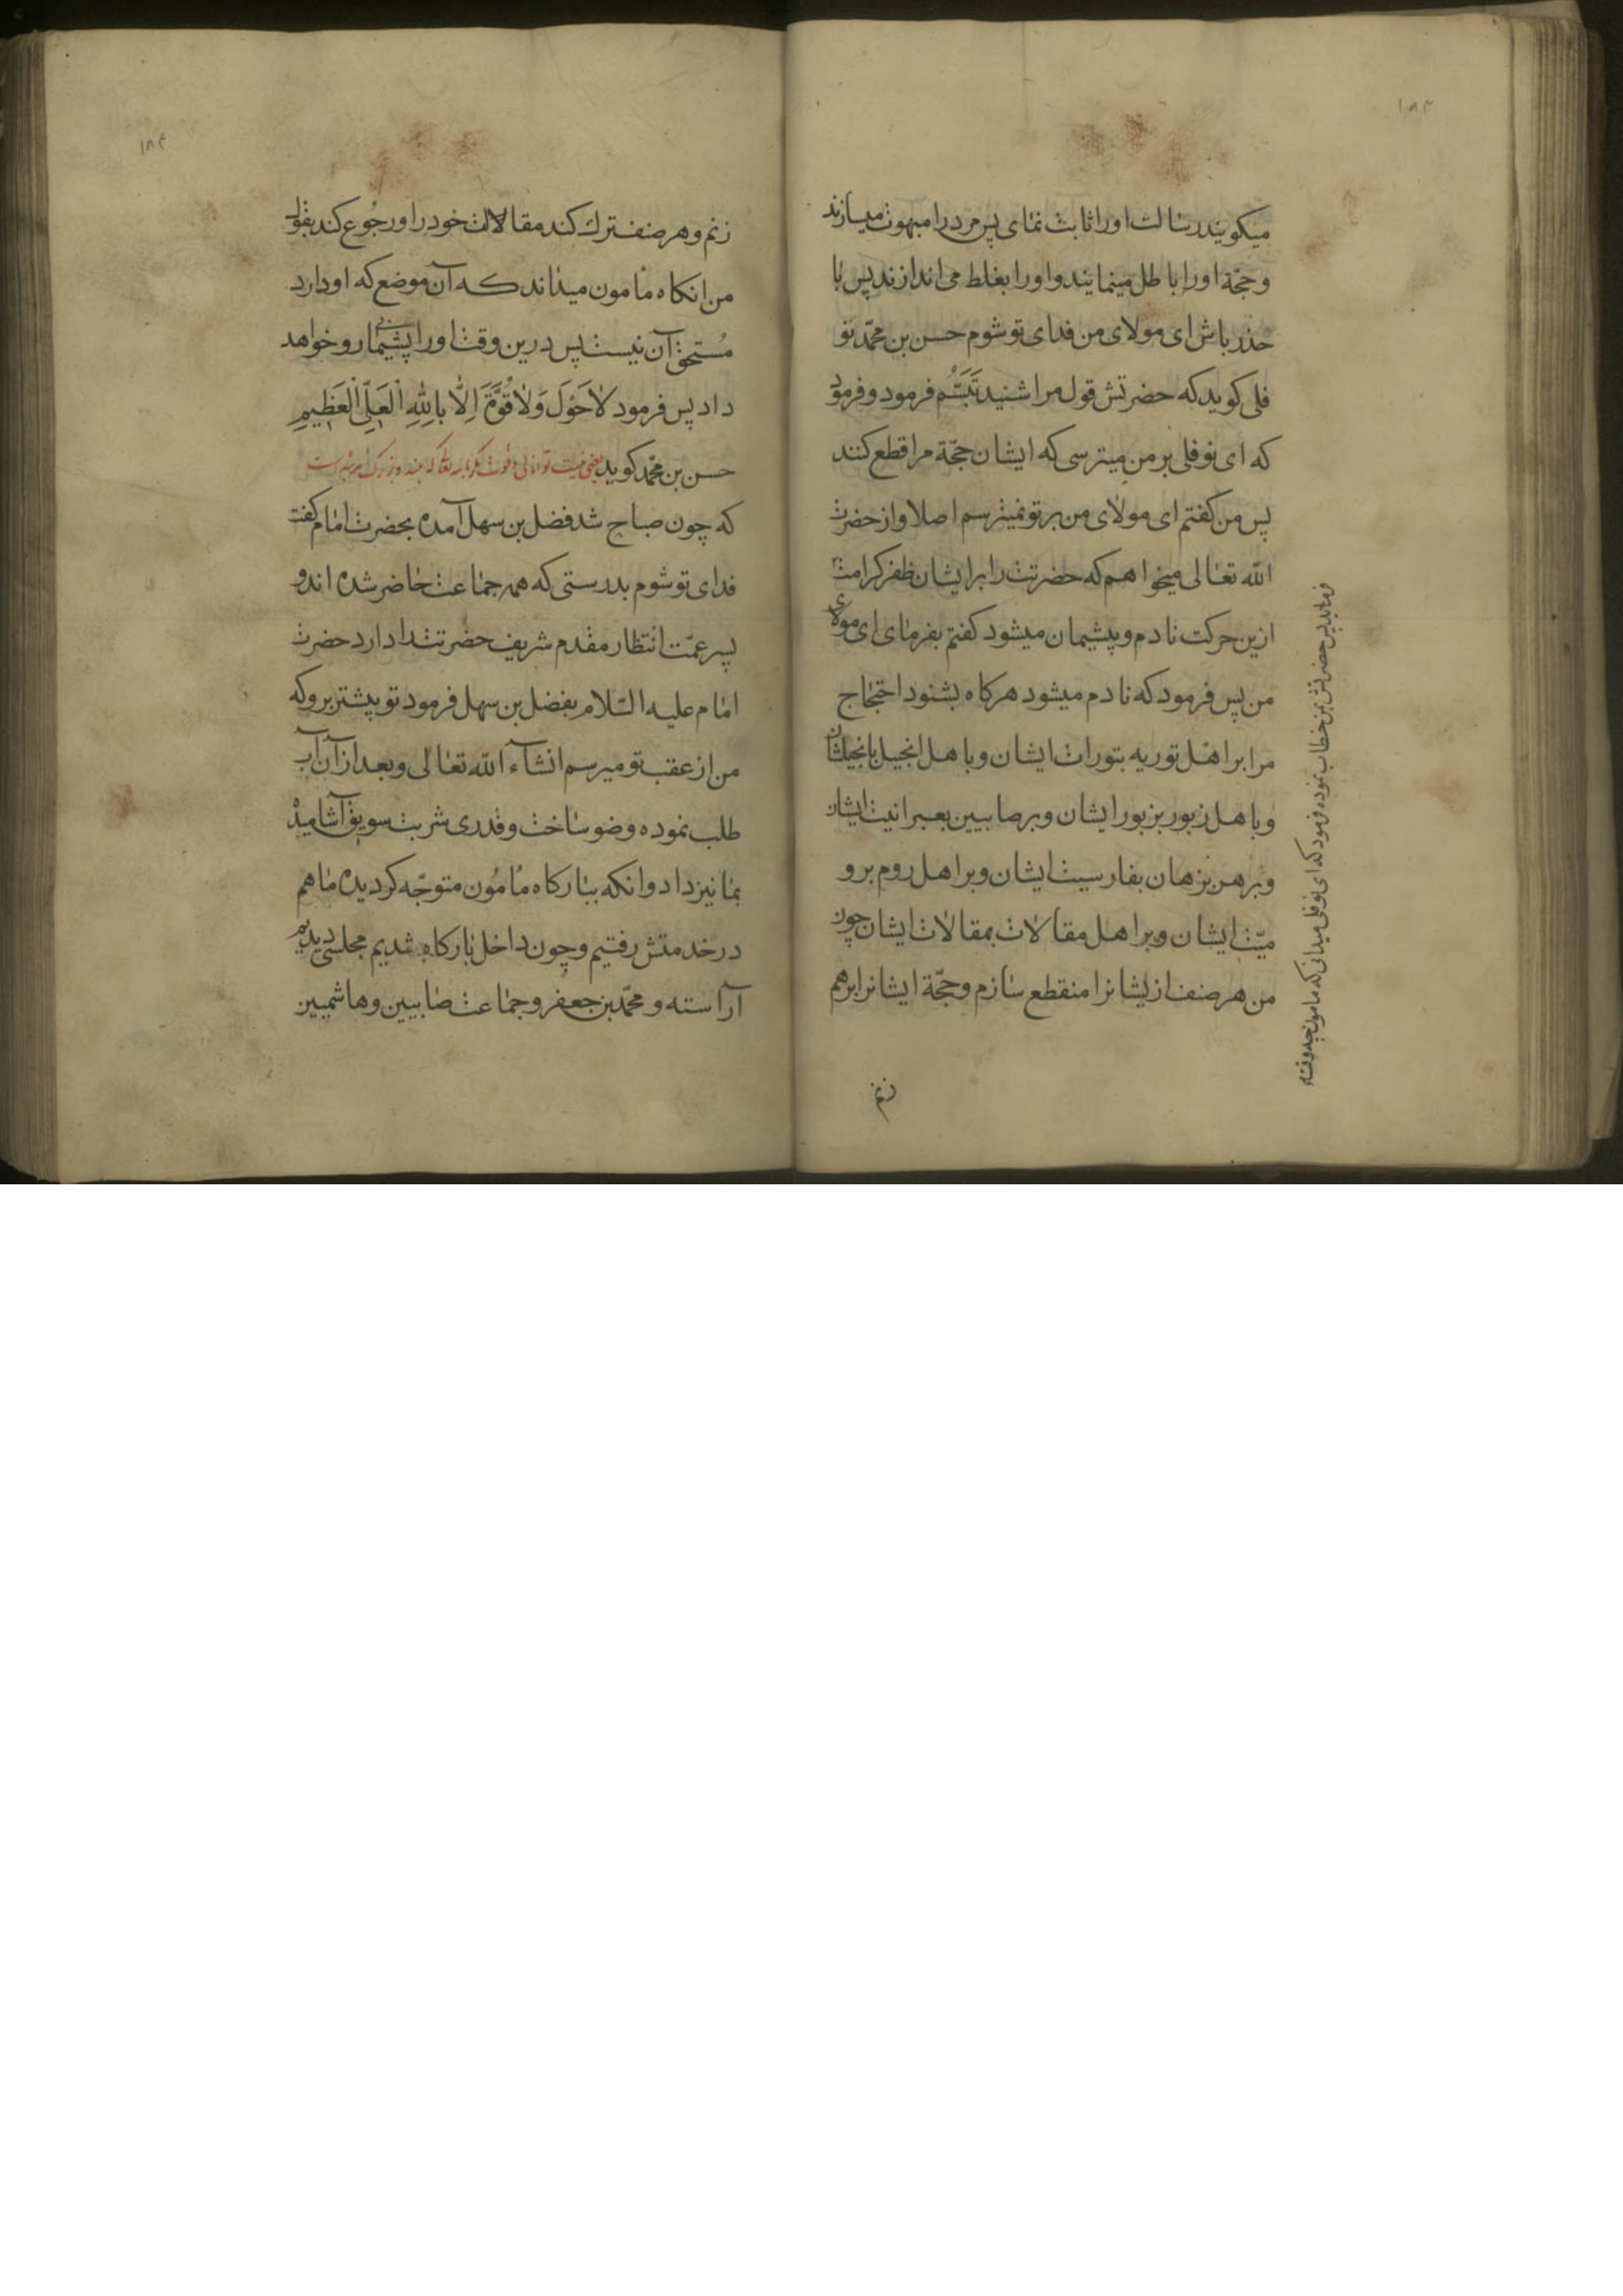 ۱۸۳
میکویند رسالت او را ثابت نمای پس مرد را مبهوت میسازند
و حجّة او را باطل مینمایند و او را بغلط می اندازند پس با
حذر باش ای مولای من فدای تو شوم حسن بن محمّد نو
فلی کوید که حضرتش قول مرا شنید تَبَسُّم فرمود و فرمود
که ای نوفلی بر من میترسی که ایشان حجّة مرا قطع کنند
پس من کفتم ای مولای من بر تو نمیترسم اصلا و از حضرت
الله تعالی میخواهم که حضرتت را بر ایشان ظفر کرامت
ازین حرکت نادم و پشیمان میشود کفتم بفرمای ای مولای
من پس فرمود که نادم میشود هرکاه بشنود احتجاج
مرا بر اهل توریه بتورات ایشان و باهل انجیل بانجیلشان
و باهل زبور بزبور ایشان و بر صابیین بعبرانیت ایشان
و بر هربزهان بفارسیت ایشان و بر اهل روم برو
میّت ایشان و بر اهل مقالات بمقالات ایشان چون
من هر صنف از یشانرا منقطع سازم و حجّة ایشانرا برهم
زنم
فرماید پس حضرتش بمن خطاب نموده فرمود که ای نوفلی میدانی که مامون چه وقت
۱۸۴
زنم و هر صنف ترك کند مقالات خود را و رجُوع کند بقول
من انکاه مأمون میداند که آن موضع که او دارد
مُستحقّ آن نیست پس درین وقت او را پشیمانی رو خواهد
داد پس فرمود لاحَوْلَ وَلا قُوَّةَ اِلَّا بِاللهِ الْعَلِیِّ الْعَظِیمِ
حسن بن محمّد کوید یعنی نیست توانائی و قوت مکر بالله تعالی که بلند و بزرك مرتبه است
که چون صباح شد فضل بن سهل آمده بحضرت امام کفت
فدای تو شوم بدرستی که همه جماعت حاضر شده اند و
پسر عمّت انتظار مقدم شریف حضرتت دارد حضرت
امام علیه السّلام بفضل بن سهل فرمود تو پیشتر برو که
من از عقب تو میرسم انشآء الله تعالی و بعد از آن آب
طلب نموده وضو ساخت و قدری شربت سویق آشامید
بما نیز داد و انکه ببارکاه مأمُون متوجّه کردیده ما هم
در خدمتش رفتیم و چون داخل بارکاه شدیم مجلسی دیدیم
آراسته و محمّد بن جعفر و جماعت صابیین و هاشمیین